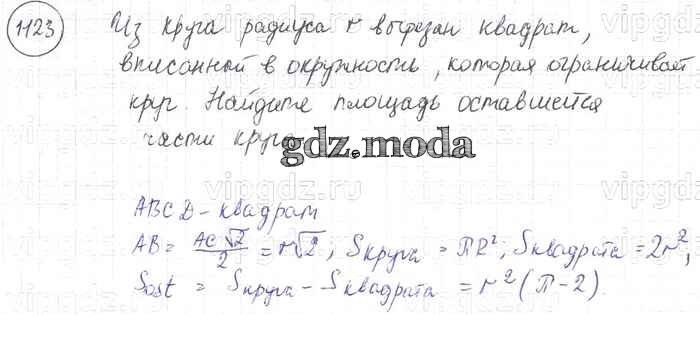 1123 Из круга радиуса r вырезан квадрат,
вписанный в окружность, которая ограничивает
круг. Найдите площадь оставшейся
части круга.
gdz.moda
ABCD - квадрат
AB = AC√2/2 = r√2, Sкруга = πR², Sквадрата = 2r²,
Sost = Sкруга - Sквадрата = r²(π-2).